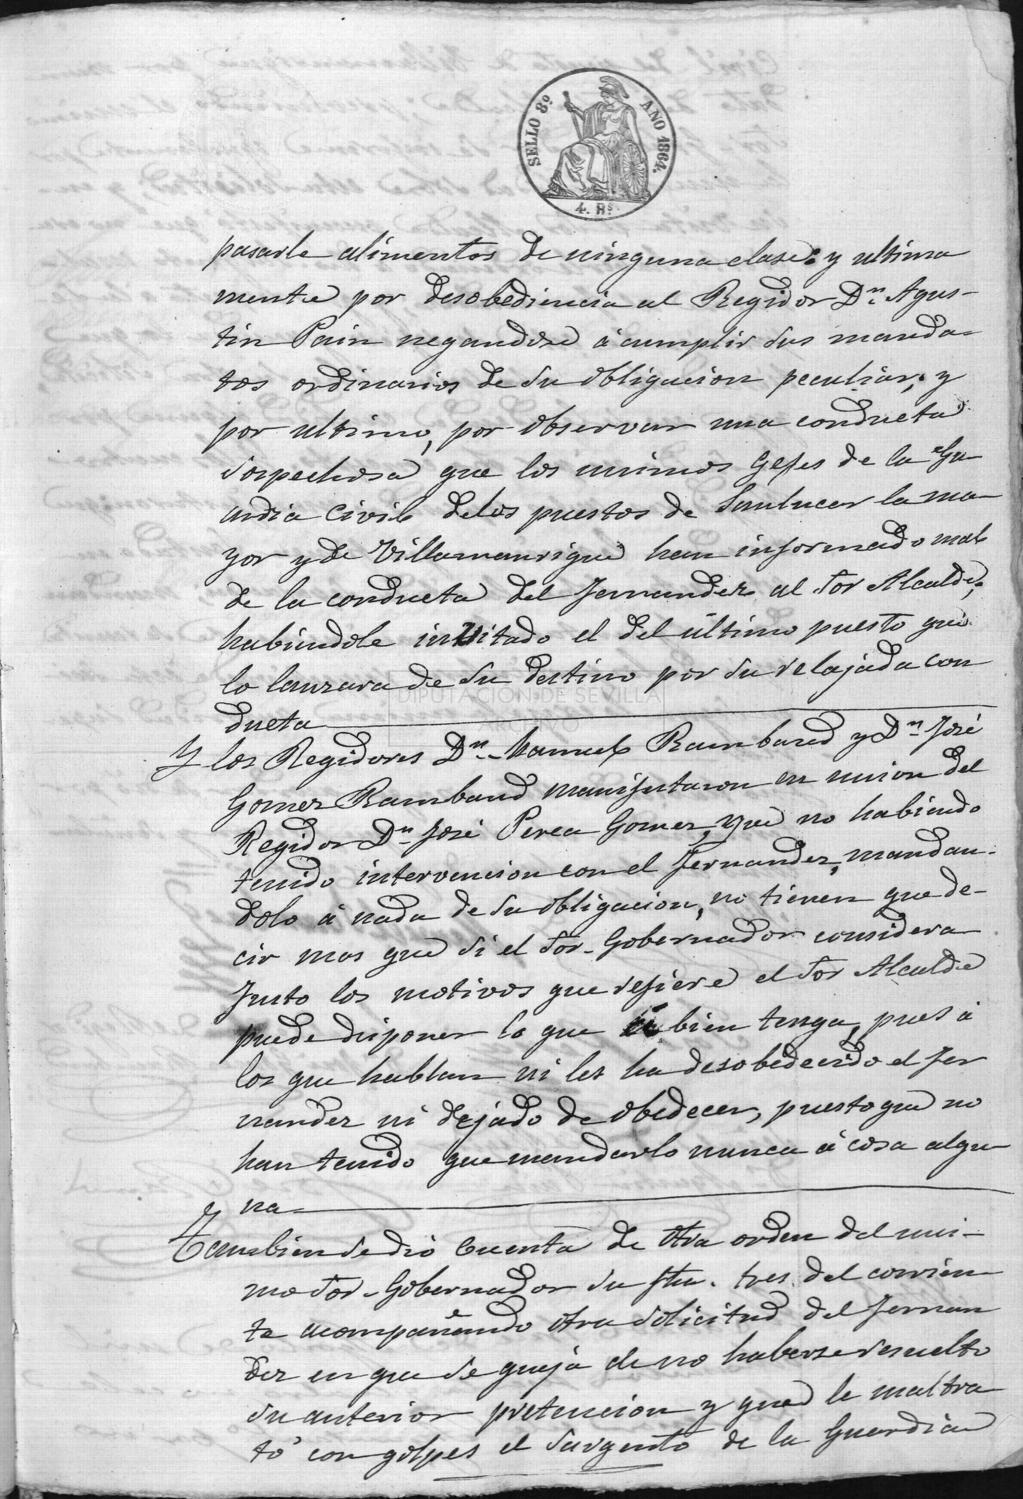 SELLO 8º AÑO 1864.
4. Rs.
pasarle alimentos de ninguna clase: y ultima
mente por desobediencia al Regidor Dn. Agus-
tin Pain negandose á cumplir sus manda-
tos ordinarios de su obligacion peculiar, y
por ultimo, por observar una conducta
sospechosa que los mismos Gefes de la Gu-
ardia Civil delos puestos de Sanlucar la ma-
yor y de Villamanrique han informado mal
de la conducta del Fernandez al Sor Alcalde,
habiendole invitado el del último puesto que
lo lanzara de su destino por su relajada con
ducta
Y los Regidores Dn. Manuel Rambaud y Dn José
Gomez Rambaud manifestaron en union del
Regidor Dn José Perea Gomez, que no habiendo
tenido intervencion con el Fernandez, mandan-
dolo á nada de su obligacion, no tienen que de-
cir mas que si el Sor. Gobernador considera
Justo los motivos que refiere el Sor Alcalde
puede disponer lo que á bien tenga, pues á
los que hablan ni les ha desobedecido el Fer
nandez ni dejado de obedecer, puesto que no
han tenido que mandarlo nunca á cosa algu
na
Tambien se dió cuenta de otra orden del mis-
mo Sor. Gobernador su fha. tres del corrien
te acompañando otra solicitud del Fernan
dez en que se queja de no haberse resuelto
su anterior pretencion y que le maltra
tó con golpes el Sargento de la Guardia
DIPUTACIÓN DE SEVILLA
ARCHIVO